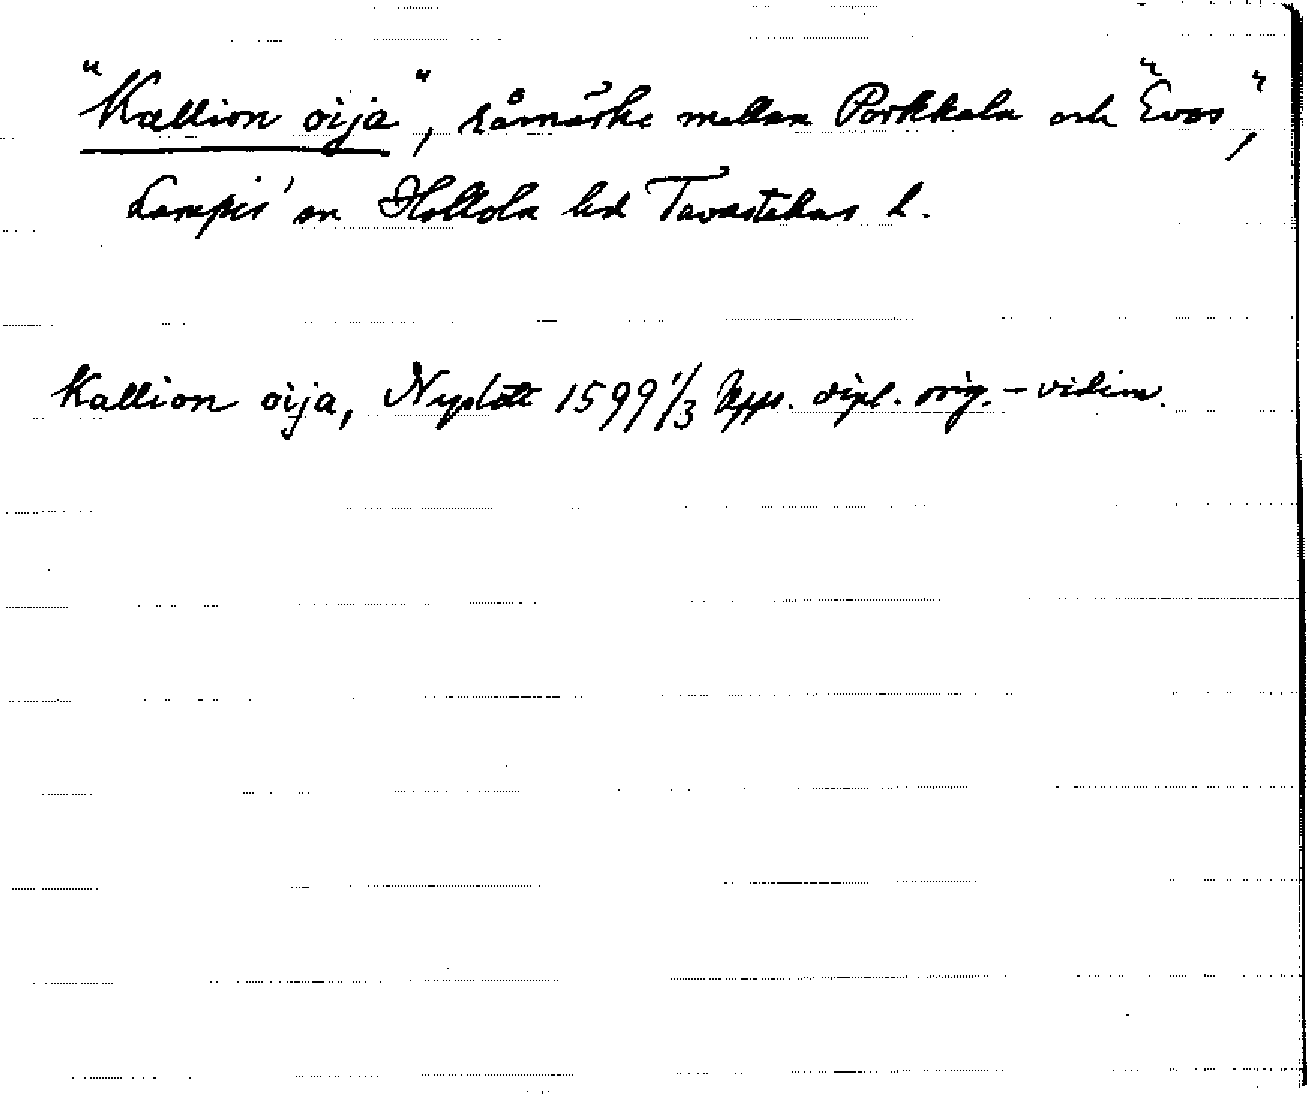 "Kallion oija", råmärke mellan Porkkala och "Evos",
Lampis' sn Hollola hd Tavastehus l.
Kallion oija, Nyslott 1599 1/3 Upps. dipl. orig. - vidim.